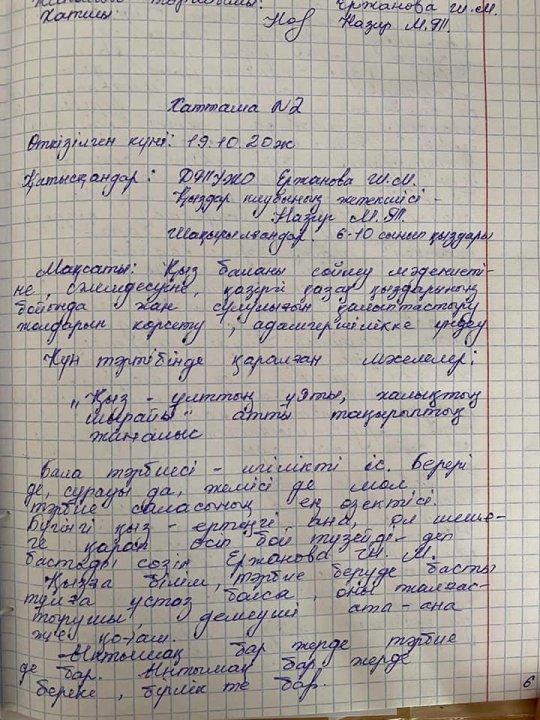 Хатшы Наз Назир М.Ят.
Ержанова Ш.М.
Хаттама №2
Өткізілген күні: 19.10.20ж
Қатысқандар: ДТІЖО Ержанова Ш.М.
Қыздар клубының жетекшісі -
Назир М.Ят.
Шақырылғандар: 6-10 сынып қыздары
Мақсаты: Қыз баланы сөйлеу мәдениеті-
не, сәлемдесуіне, қазіргі қазақ қыздарының
бойында жан сұлулығын қалыптастыру
жолдарын көрсету, адамгершілікке үндеу
Күн тәртібінде қаралған мәселелер:
„Қыз - ұлттың ұяты, халықтың
шырайы" атты тақырыптық
жиналыс
Бала тәрбиесі - игілікті іс. Берері
де, сұрауы да, жемісі де мол
тәрбие саласының ең өзектісі.
Бүгінгі қыз - ертеңгі ана, ол шеше-
ге қарап өсіп бой түзейді - деп
бастады сөзін Ержанова Ш. М.
Қызға білім, тәрбие беруде басты
тұлға ұстаз болса, оны жалғас-
тырушы демеуші ата-ана
және қоғам.
Ынтымақ бар жерде тәрбие
де бар. Ынтымақ бар жерде
береке, бірлік те бар.
6